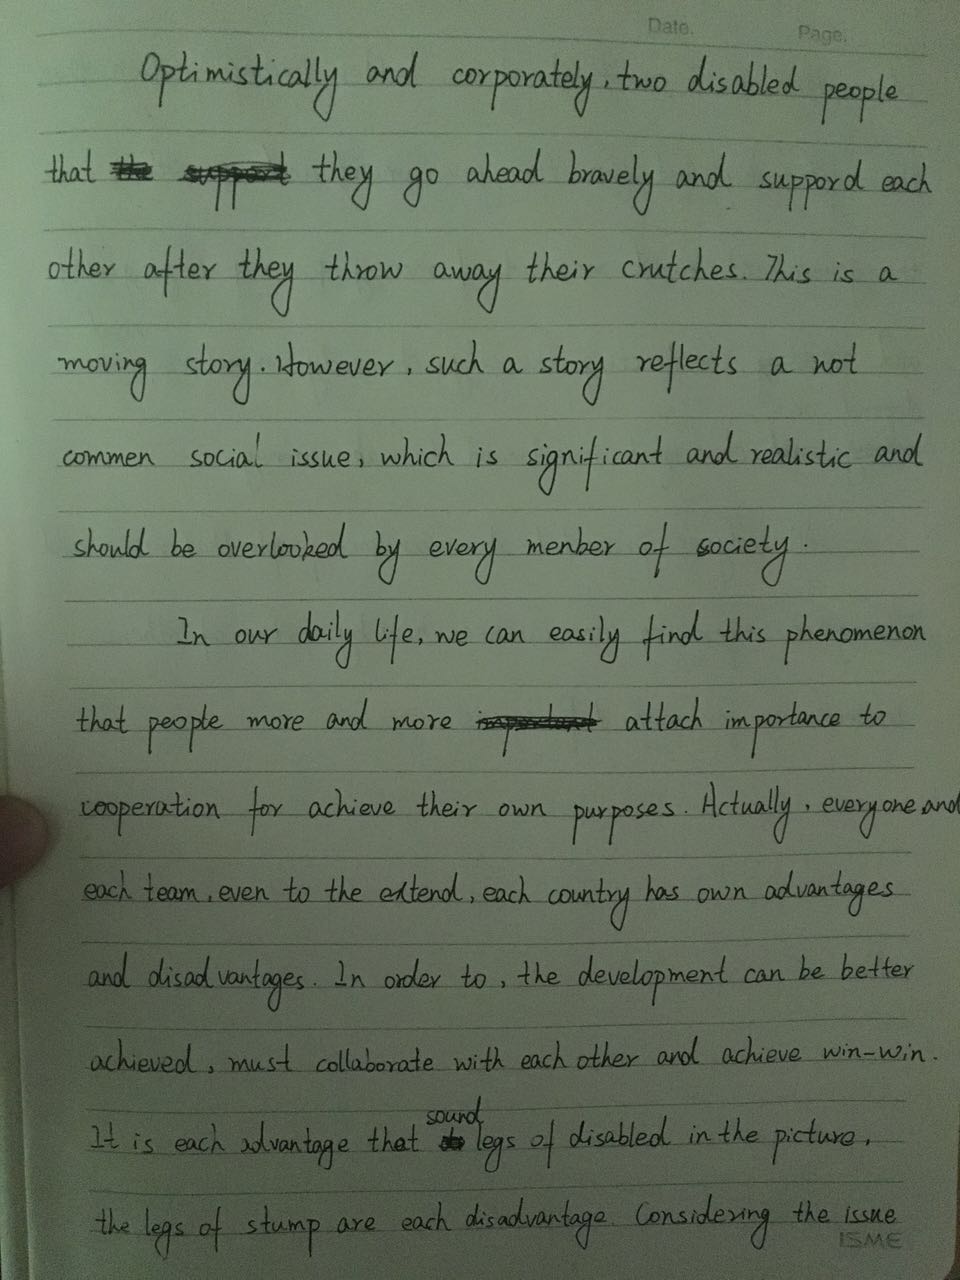 Date. Page.
Optimistically and corporately, two disabled people
that they go ahead bravely and suppord each
other after they throw away their crutches. This is a
moving story. However, such a story reflects a not
commen social issue, which is significant and realistic and
should be overlooked by every menber of society.
In our daily life, we can easily find this phenomenon
that people more and more attach importance to
cooperation for achieve their own purposes. Actually, everyone and
each team, even to the extend, each country has own advantages
and disadvantages. In order to, the development can be better
achieved, must collaborate with each other and achieve win-win.
It is each advantage that sound legs of disabled in the picture,
the legs of stump are each disadvantage. Considering the issue
ISME